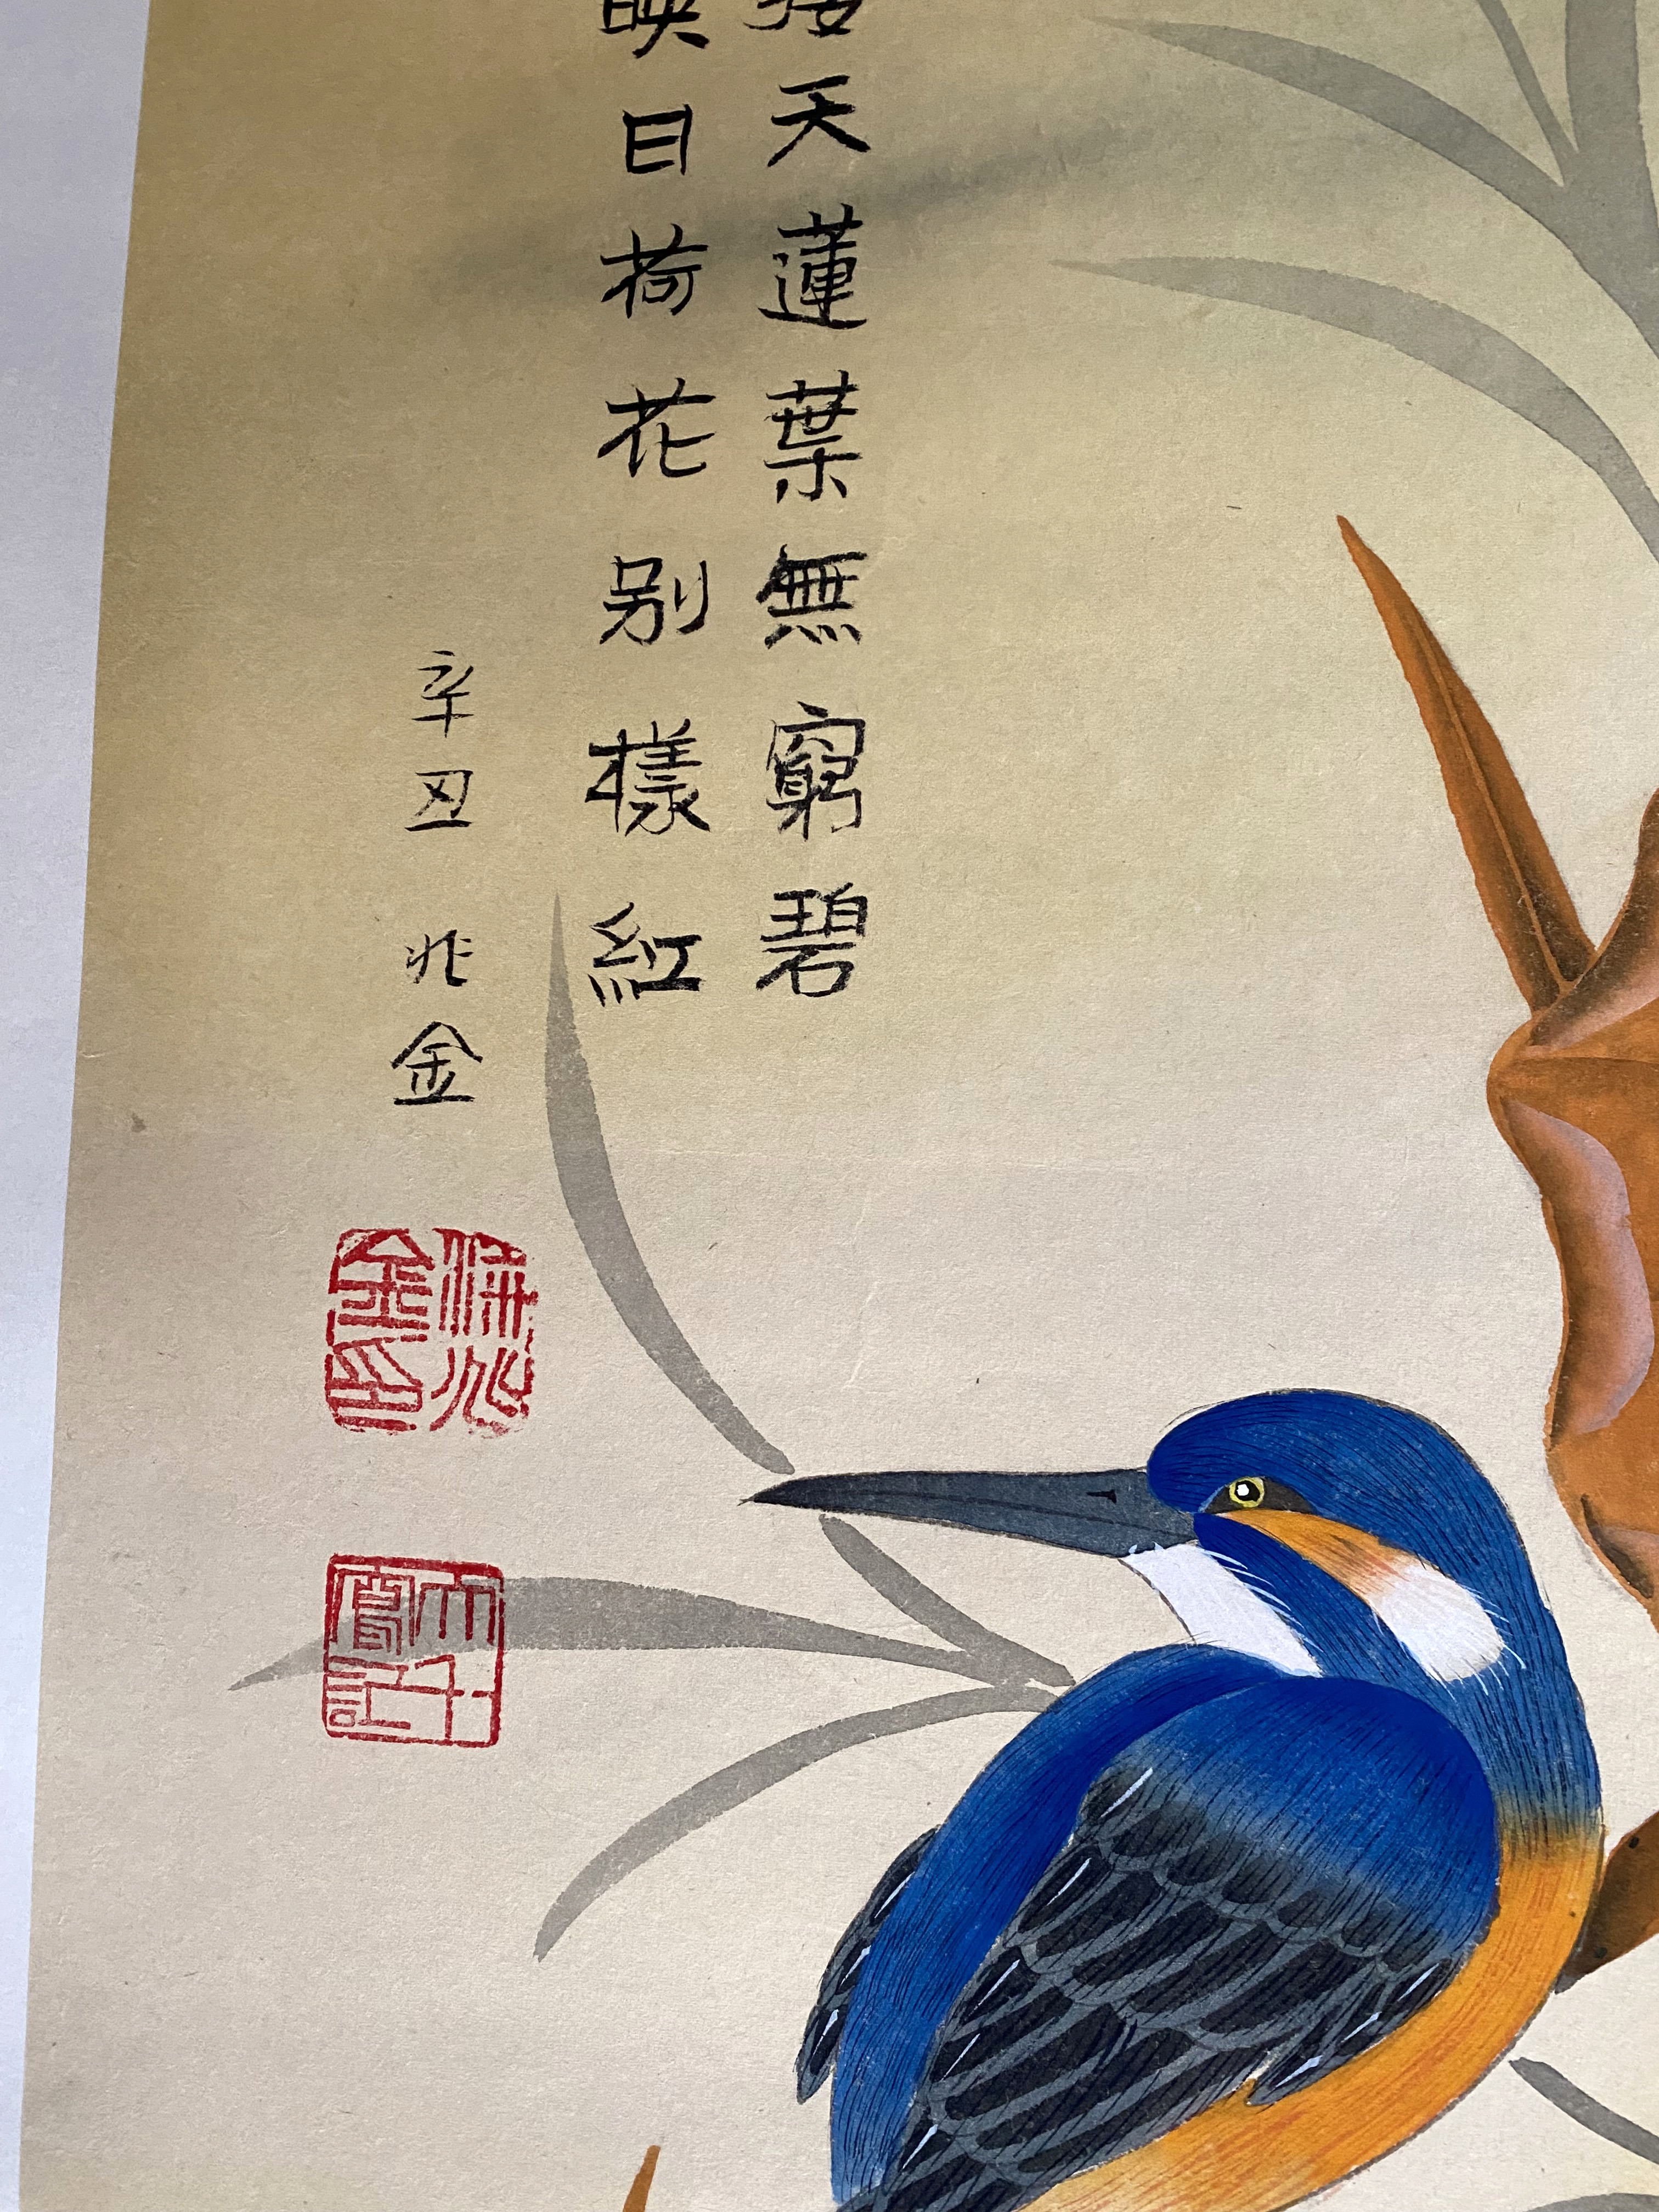 接天蓮葉無窮碧
映日荷花别樣紅
辛丑 兆金
金印